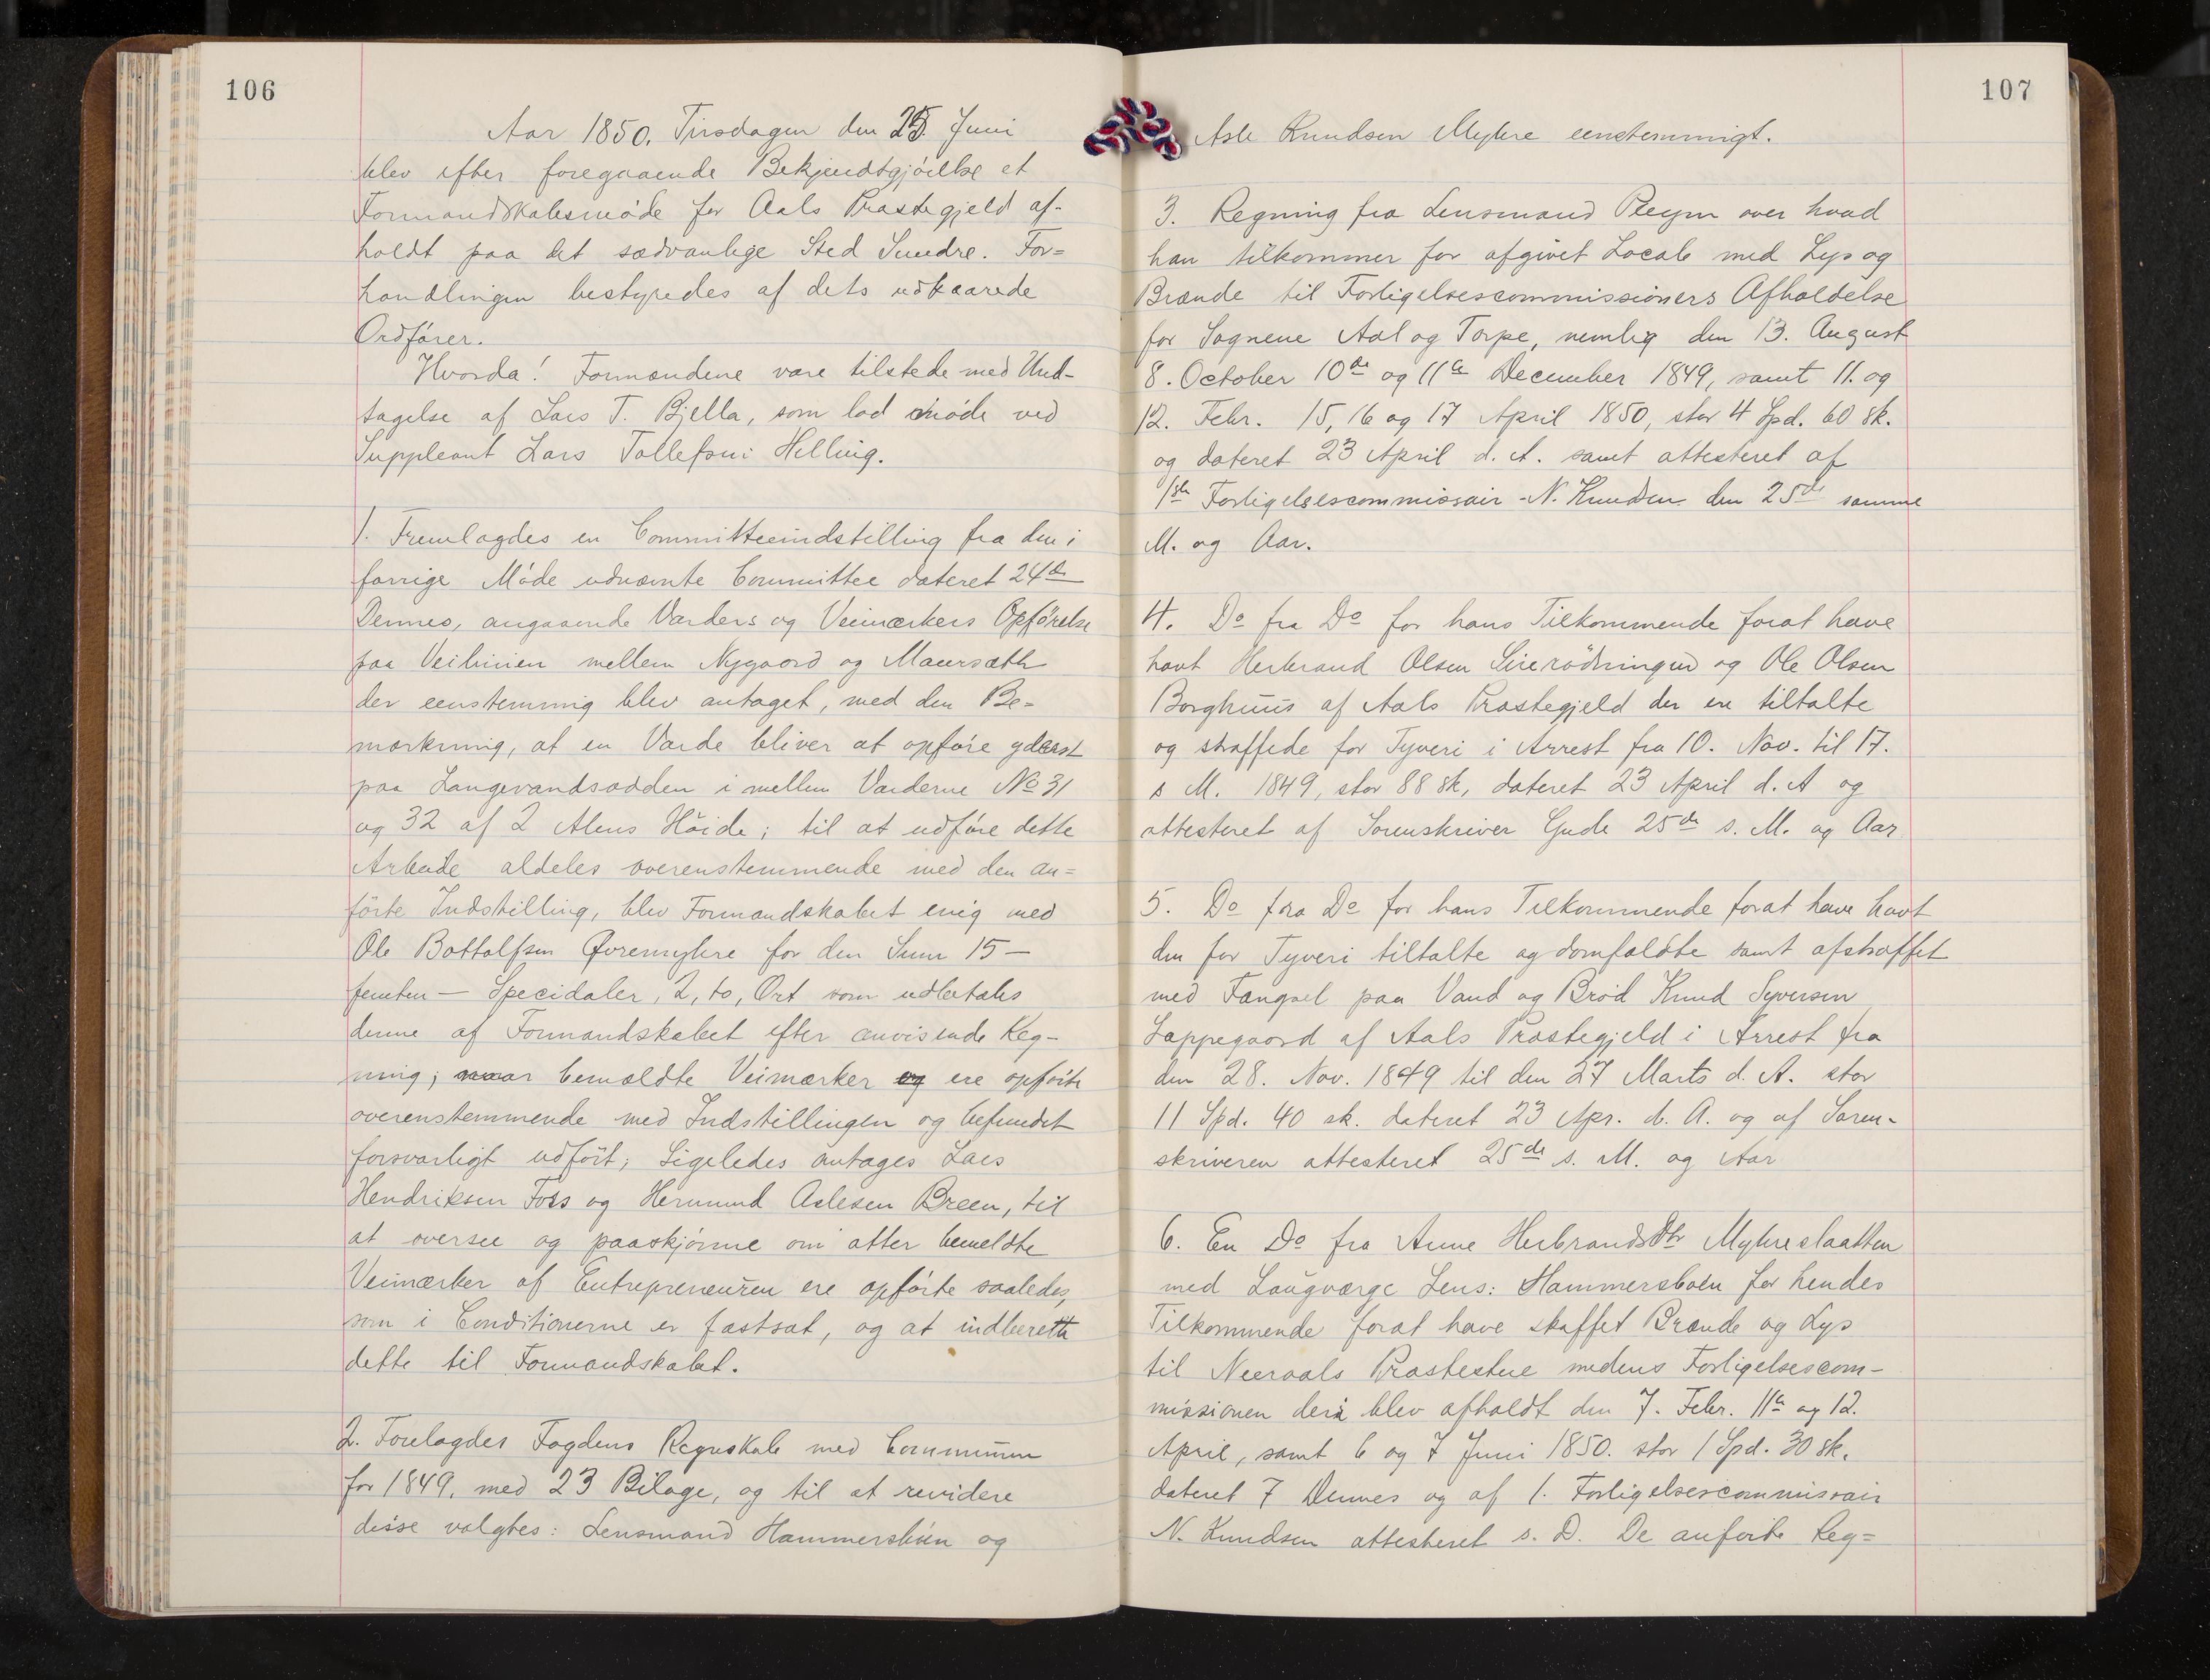 106
Aar 1850, Tirsdagen den 25. Juni
blev efter foregaaende Bekjendtgjörelse et
Formandskabsmöde for Aals Præstegjeld af-
holdt paa det sædvanlige Sted Sundre. For=
handlingen bestyredes af dets udkaarede
Ordförer.
Hvorda! Formændene vare tilstede med Und-
tagelse af Lars T. Bjella, som lod möde ved
Suppleant Lars Tollefsen Helling.
1. Fremlagdes en Committeeindstilling fra den i
forrige Möde udnævnte Committee dateret 24de
Dennes, angaaende Varders og Veimærkers Opförelse
paa Veilinien mellem Nygaard og Maursæth
der eenstemmig blev antaget, med den Be=
mærkning, at en Varde bliver at opföre yderst
paa Langevandsodden i mellem Varderne No 31
og 32 af 2 Alens Höide; til at udföre dette
Arbeide aldeles overenstemmende med den an=
förte Indstilling, blev Formandskabet enig med
Ole Bottolfsen Øvremyhre for den Sum 15 —
femten — Specidaler, 2, to, Ort som udbetales
denne af Formandskabet efter anvisende Reg-
ning; naar bemældte Veimærker og ere opförte
overenstemmende med Indstillingen og befundet
forsvarligt udfört; Ligeledes antages Lars
Hendriksen Foss og Hermund Aslesen Breen, til
at oversee og paaskjönne om atter bemeldte
Veimærker af Entrepreneuren ere opförte saaledes,
som i Conditionerne er fastsat, og at indberette
dette til Formandskabet.
2. Forelagdes Fogdens Regnskab med Communen
for 1849, med 23 Bilage, og til at revidere
disse valgtes: Lensmand Hammersböen og
107
Asle Knudsen Myhre eenstemmigt.
3. Regning fra Lensmand Pleym over hvad
han tilkommer for afgivet Locale med Lys og
Brænde til Forligelsescommissioners Afholdelse
for Sognene Aal og Torpe, nemlig den 13. August
8. October 10de og 11te December 1849, samt 11. og
12. Febr. 15, 16 og 17 April 1850, stor 4 Spd. 60 sk.
og dateret 23 April d. A. samt attesteret af
1ste Forligelsescommissair N. Knudsen den 25de samme
M. og Aar.
4. Do fra Do for hans Tilkommende forat have
havt Herbrand Olsen og Ole Olsen
Borghuus af Aals Præstegjeld der ere tiltalte
og straffede for Tyveri i Arrest fra 10. Nov. til 17.
s M. 1849, stor 88 sk, dateret 23 April d. A og
attesteret af Sorenskriver Gude 25de s. M. og Aar
5. Do fra Do for hans Tilkommende forat have havt
den for Tyveri tiltalte og domfældte samt afstraffet
med Fængsel paa Vand og Bröd Knud Syversen
Lappegaard af Aals Præstegjeld i Arrest fra
den 28. Nov. 1849 til den 27 Marts d. A. stor
11 Spd. 40 sk. dateret 23 Apr. d. A. og af Soren-
skriveren attesteret 25de s. M. og Aar
6. En Do fra Anne HerbrandsDtr Myhreslaatten
med Laugværge Lens: Hammersböen for hendes
Tilkommende forat have skaffet Brænde og Lys
til Neeraals Præstestue medens Forligelsescom-
missionen deri blev afholdt den 7. Febr. 11te og 12.
April, samt 6 og 7 Juni 1850. stor 1 Spd. 30 sk.
dateret 7 Dennes og af 1. Forligelsescommissair
N. Knudsen attesteret s. D. De anförte Reg=